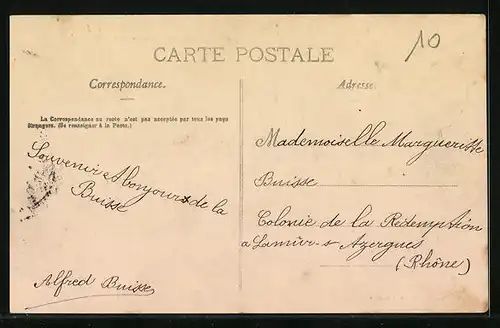 CARTE POSTALE
10
Correspondance.
Adresse.
La Correspondance au recto n'est pas acceptée par tous les pays
étrangers. (Se renseigner à la Poste.)
Souvenir et bonjour de la
Buisse
Alfred Buisse
Mademoiselle Marguerite
Buisse
Colonie de la Rédemption
a Lamûr-s-Azergues
(Rhône)